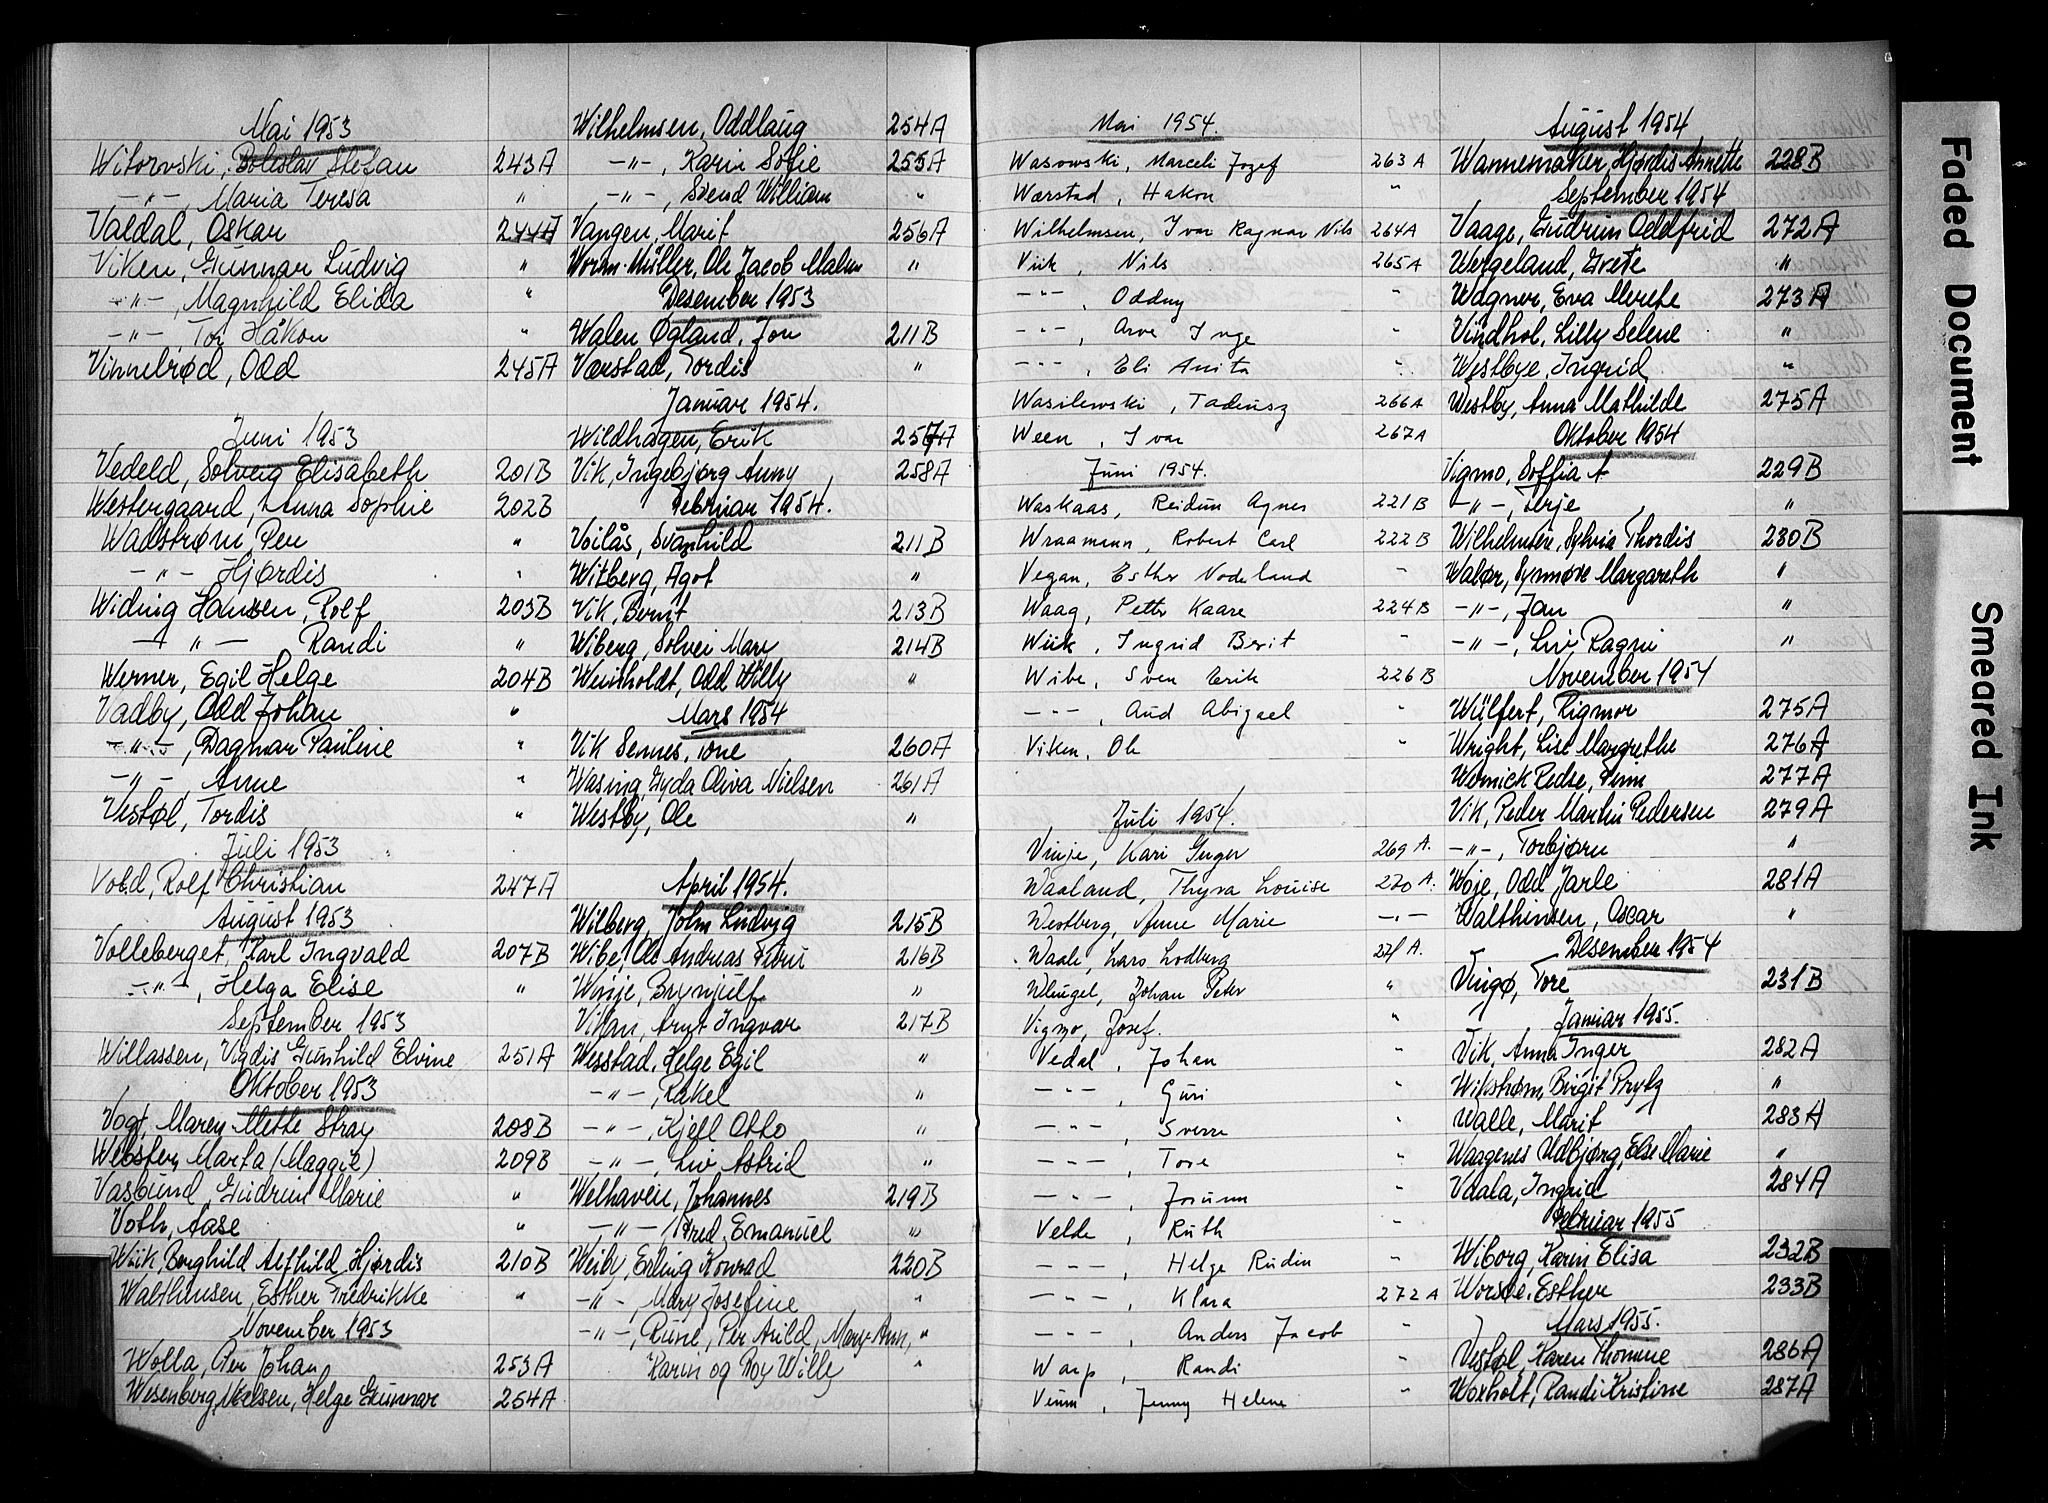 Mai 1953
Witorovski, Boleslav Stefan 243A
-"-, Maria Teresa "
Valdal, Oskar 244A
Viken, Gunnar Ludvig "
-"-, Magnhild Elida "
-"-, Tor Håkon "
Vinnelrød, Odd 245A
Juni 1953
Vedeld, Solveig Elisabeth 201B
Westergaard, Anna Sophie 202B
Wadstrøm, Per "
-"- Hjørdis "
Widing Hansen, Rolf 203B
-"- Randi "
Werner, Egil Helge 204B
Vadby, Odd Johan "
-"-, Dagmar Pauline "
-"-, Anne "
Vestøl, Tordis "
Juli 1953
Vold, Rolf Christian 247A
August 1953
Volleberget, Karl Ingvald 207B
-"-, Helga Elise "
September 1953
Willassen, Vigdis Gunhild Elvine 251A
Oktober 1953
Vogt, Maren Mette Stray 208B
Webster, Marta (Maggie) 209B
Vasbund, Gudrun Marie "
Voth, Aase "
Wiik, Borghild Alfhild Hjørdis 210B
Walthinsen, Esther Fredrikke "
November 1953
Wolla, Per Johan 253A
Wesenberg Nielsen, Helge Gunnar 254A
Wilhelmsen, Oddlaug 254A
-"-, Karin Sofie 255A
-"-, Svend William "
Vangen, Marit 256A
Worm-Müller, Ole Jacob Malm "
Desember 1953
Walen Øgland, Jon 211B
Værstad, Tordis "
Januar 1954.
Wildhagen, Erik 257A
Vik, Ingebjørg Anny 258A
Februar 1954.
Voilås, Svanhild 211B
Witberg, Agot "
Vik, Bernt 213B
Wiberg, Solvei Mary 214B
Weinholdt, Odd Willy "
Mars 1954
Vik Sennes, Tone 260A
Wasing, Gyda Oliva Nielsen 261A
Westby, Ole "
April 1954.
Wilberg, John Ludvig 215B
Wibe, Ole Andreas Furu 216B
Winje, Brynjulf "
Villan, Arnt Ingvar 217B
Wesstad, Helge Egil "
-"-, Rakel "
-"-, Kjell Otto "
-"-, Liv Astrid "
Welhaven, Johannes 219B
-"- Fred Emanuel "
Weiby, Erling Konrad 220B
-"- Mary Josefine "
-"-, Rune, Per Arild, Mary-Ann, "
Karin og Roy Willy "
Mai 1954.
Wasowski, Marceli Jozef 263 A
Wærstad, Håkon "
Wilhelmsen, Ivar Ragnar Nils 264A
Viik, Nils 265A
-"-, Oddny "
-"-, Arve Inge "
-"-, Eli Anita "
Wasilewski, Tadeusz 266A
Ween, Ivar 267A
Juni 1954.
Waskaas, Reidun Agnes 221B
Wraamann, Robert Carl 222B
Vegan, Esther Nodeland "
Waag, Petter Kaare 224B
Wiik, Ingrid Berit "
Wibe, Sven Erik 226B
-"-, Aud Abigael "
Viken, Ole "
Juli 1954.
Vinje, Kari Inger 269 A.
Waaland, Thyra Louise 270 A.
Westberg, Anne Marie -"-
Waale, Lars Lodberg 271 A.
Johan Peter "
Vigmo, Josef. "
Vedal, Johan "
-"-, Guri "
-"-, Sverre "
-"-, Tore "
-"-, Jorunn "
Velde, Ruth "
-"-, Helge Rudin "
-"-, Klara 272A
-"-, Anders Jacob "
Warp, Randi "
Veum, Jenny Helene "
August 1954
Wannemaker, Hjørdis Annette 228B
September 1954
Vaage, Gudrun Oddfrid 272A
Wergeland, Grete "
Wagner, Eva Merete 273A
Vindhol, Lilly Selene "
Westbye, Ingrid "
Westby, Anna Mathilde 275A
Oktober 1954
Vigmo, Soffia A 229B
-"-, Terje "
Wilhelmsen, Sylvia Thordis 230B
Walør, Synnøve Margareth "
-"-, Jan "
-"-, Liv Ragni "
November 1954
Wülfert, Rigmor 275A
Wright, Lise Margrethe 276A
Wernick Redse, Finn 277A
Vik, Peder Martin Pedersen 279A
-"-, Torbjørn "
Woje, Odd Jarle 281A
Walthinsen, Oscar "
Desember 1954
Vingø, Tore 231B
Januar 1955.
Vik, Anna Inger 282A
Wikstrøm, Birgit Prytz "
Walle, Marit 283A
Waagenes Udbjørg, Else Marie "
Vaala, Ingrid 284A
Februar 1955
Wiborg, Karin Elisa 232B
Worsøe, Esther 233B
Mars 1955.
Vestøl, Karen Thomine 286A
Woxholt, Randi Kristine 287A
Faded Document
Smeared Ink